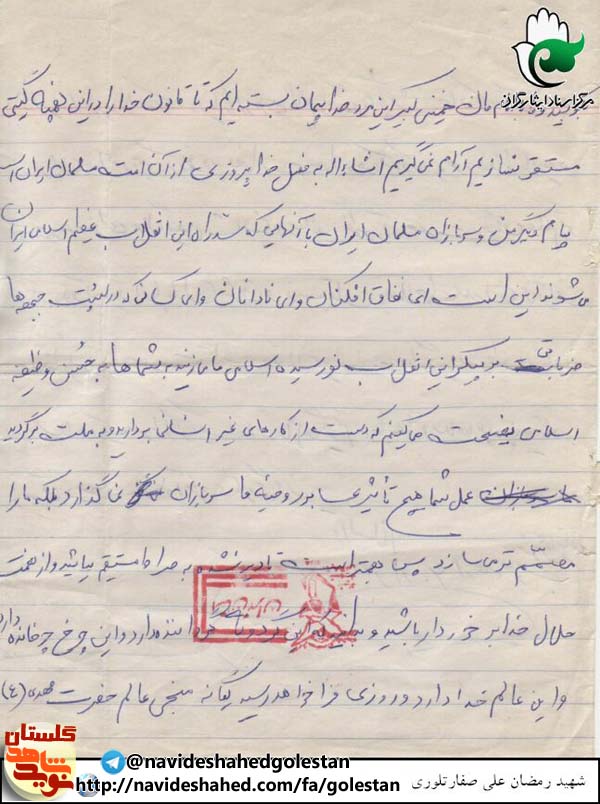 مرکز اسناد ایثارگران
امام مان خمینی کبیر این برد خدا پیمان بسته ایم که تا قانون خدا را در این پهنه گیتی
مستقر نسازیم آرام نمی گیریم انشاءاله به فضل خدا پیروزی از آن امت مسلمان ایران است
پیام دیگر من و سربازان مسلمان ایران با آنهایی که سد راه این انقلاب عظیم اسلامی ایران
می شوند این است ای نفاق افکنان و ای نادانان و ای کسانی که در پشت جبهه ها
ضرباتی بر پیکر این انقلاب نو رسیده اسلامی ما می زنید به شماها به حسن وظیفه
اسلامی نصیحت می کنیم که دست از کارهای غیر انسانی بردارید و به ملت برگردید
عمل شما هیچ تأثیری بر روحیه ما سربازان نمی گذارد بلکه ما را
مصمم تر می سازد پس بهتر است تا دیر نشده به صراط مستقیم بیائید و از نعمت
حلال خدا برخوردار باشید و این گردونه گرداننده دارد و این چرخ چرخاننده دارد
و این عالم خدا دارد و روزی فرا خواهد رسید یگانه منجی عالم حضرت مهدی (ع)
گلستان
نوید شاهد
@navideshahedgolestan
http://navideshahed.com/fa/golestan
شهید رمضان علی صفارتلوری